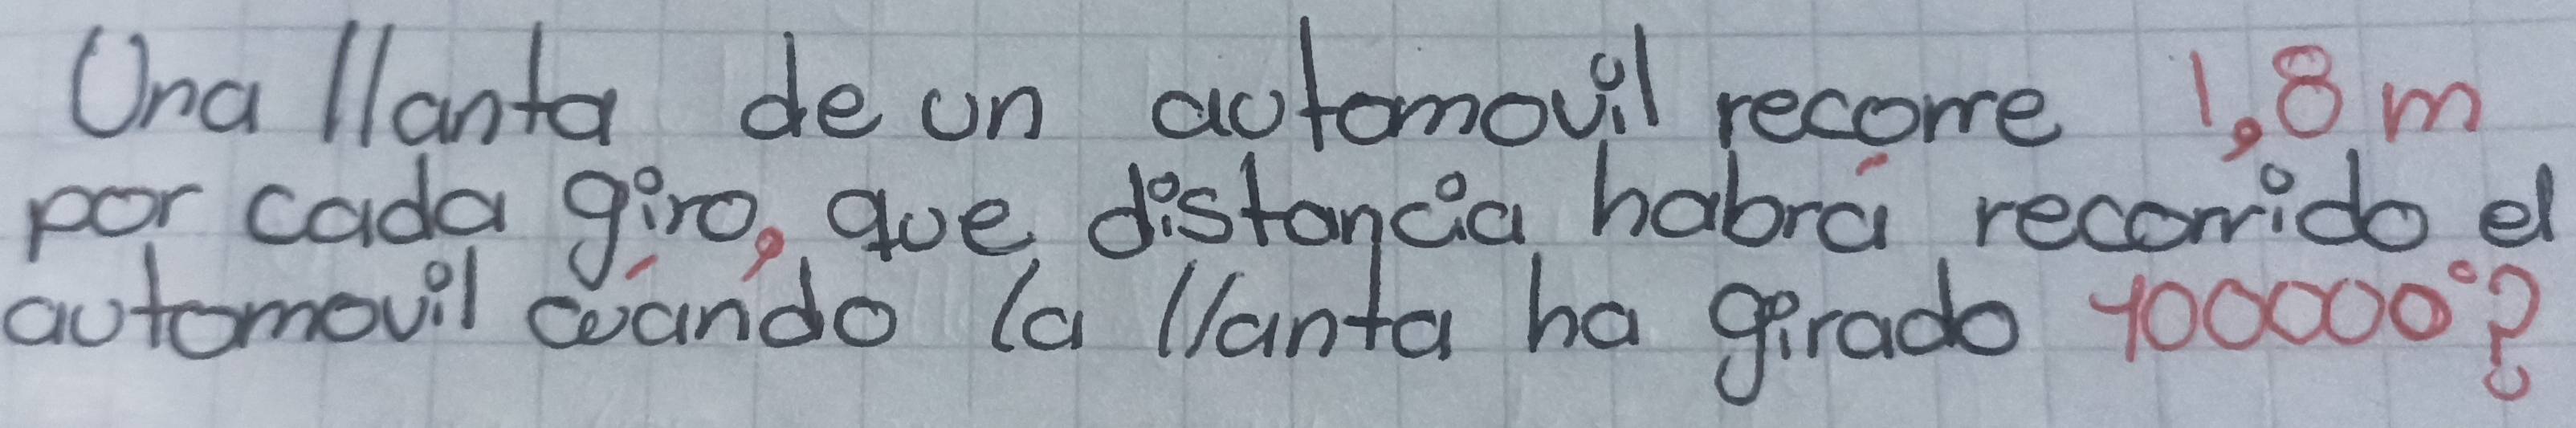 Una llanta de un automovil recorre 1,8 m
por cada giro, que distancia habrá recorrido el
automovil cuándo la llanta ha girado 100000°?